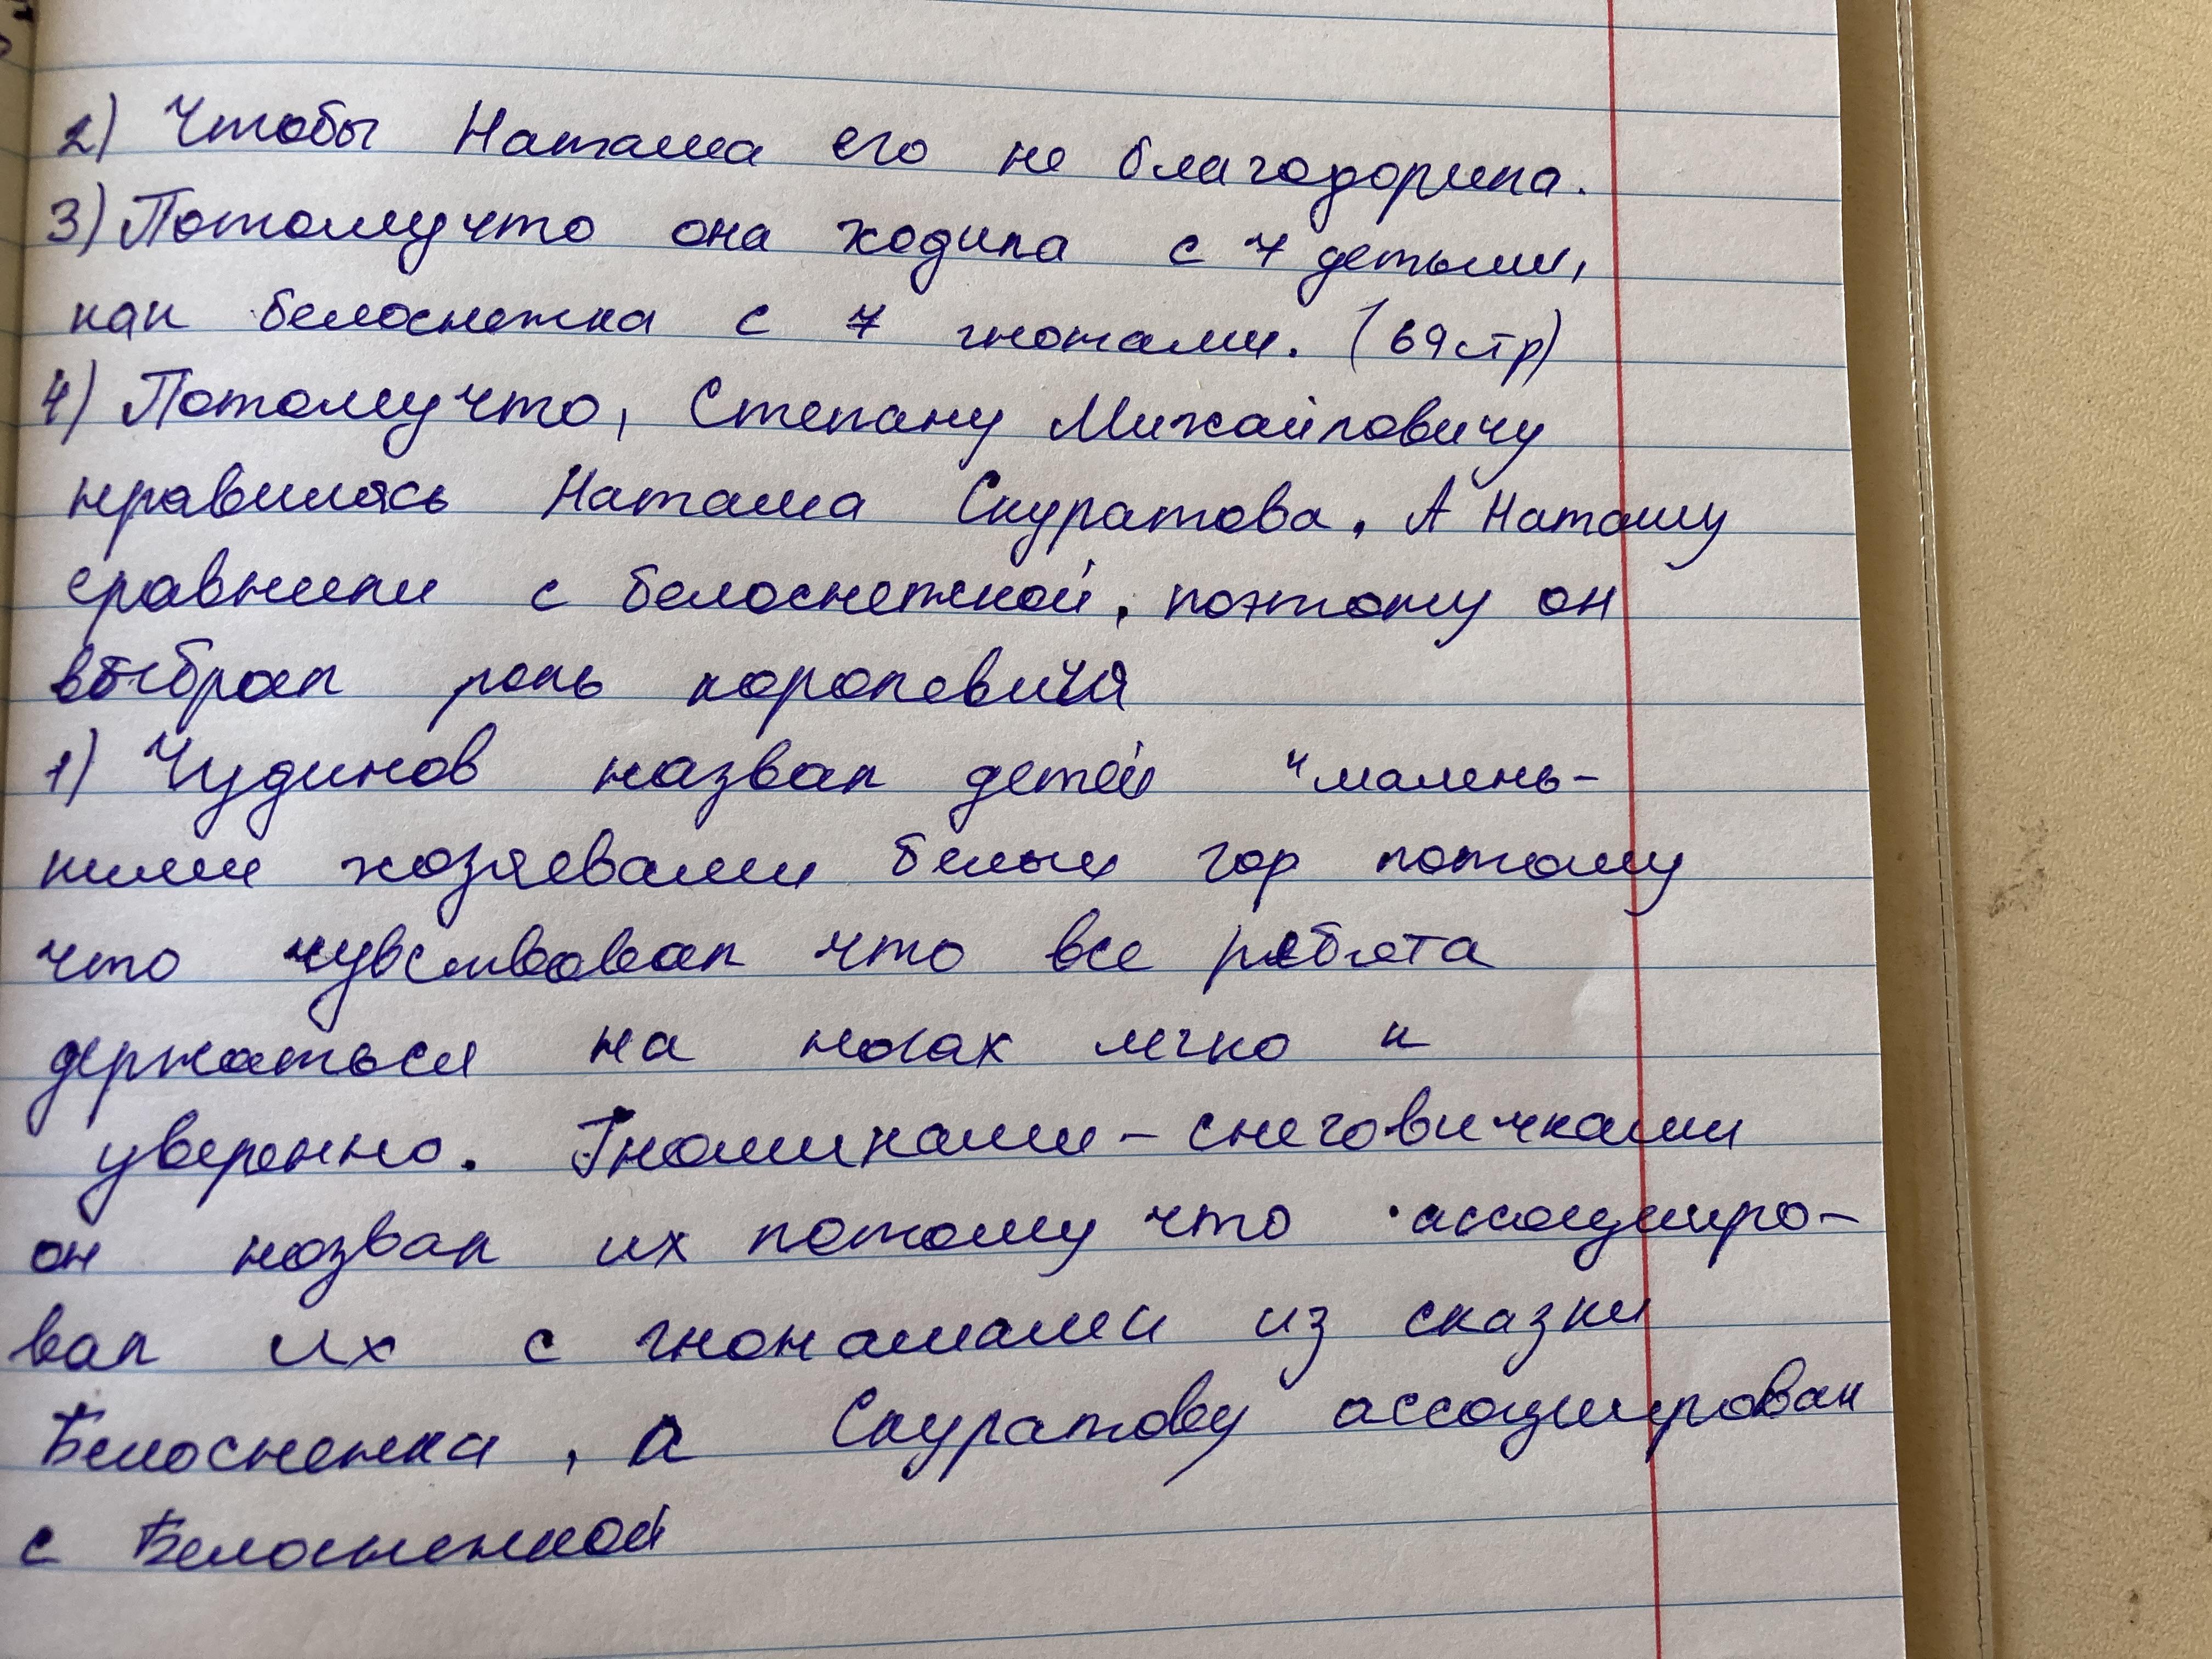 2) Чтобы Наташа его не благодорила.
3) Потому что она ходила с 7 детьми,
как белоснежка с 7 гномами. (69 стр)
4) Потому что, Степану Михайловичу
нравилась Наташа Скуратова. А Наташу
сравнили с белоснежкой, поэтому он
выбрал роль королевича
1) Чудинов назвал детей "малень-
кими хозяевами белых гор потому
что чувствовал что все ребята
держаться на ногах легко и
уверенно. Гномиками-снеговичками
он назвал их потому что ассоциро-
вал их с из сказки
Белоснежка, а Скуратову ассоциировал
с Белоснежкой